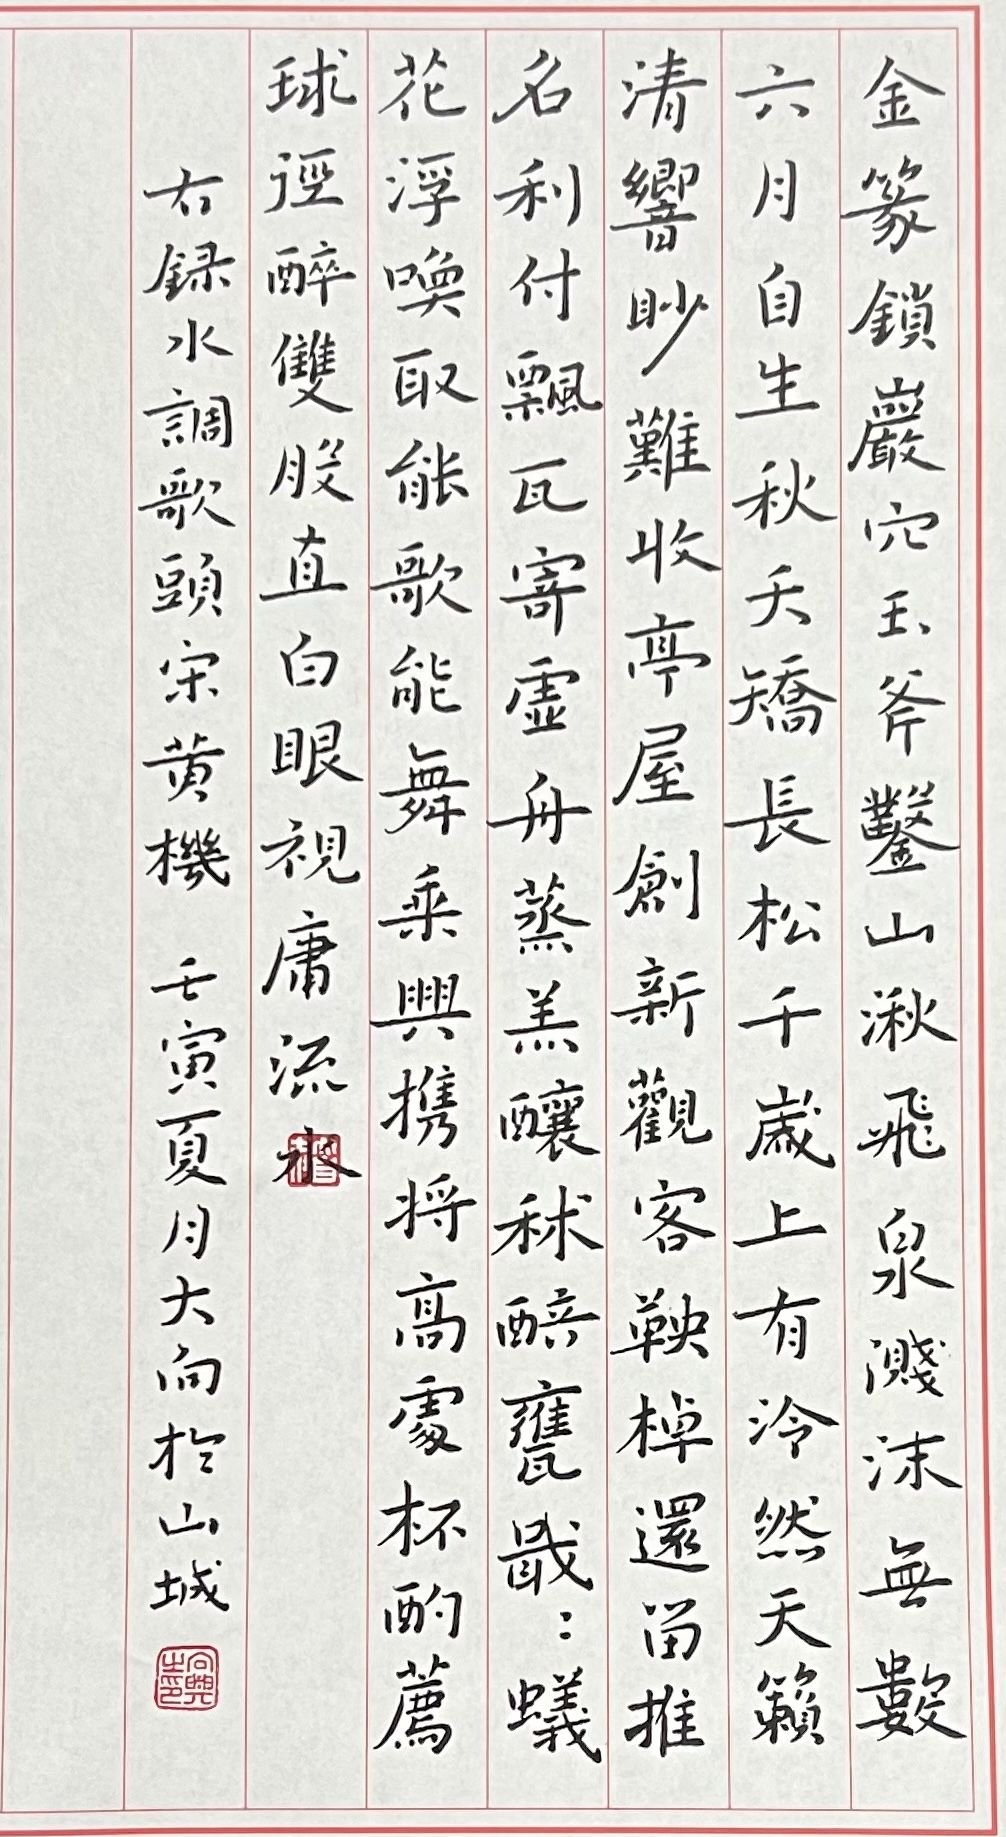 金篆鎖巖穴玉斧鑿山湫飛泉濺沫無數
六月自生秋夭矯長松千歲上有冷然天籟
清響眇難收亭屋創新觀客鞅棹還留推
名利付飄瓦寄虛舟蒸羔釀秫醅甕戢〻蟻
花浮喚取能歌能舞乘興携將高處杯酌薦
球徑醉雙股直白眼視庸流水
右録水調歌頭宋黄機 壬寅夏月大向於山城
向興之印